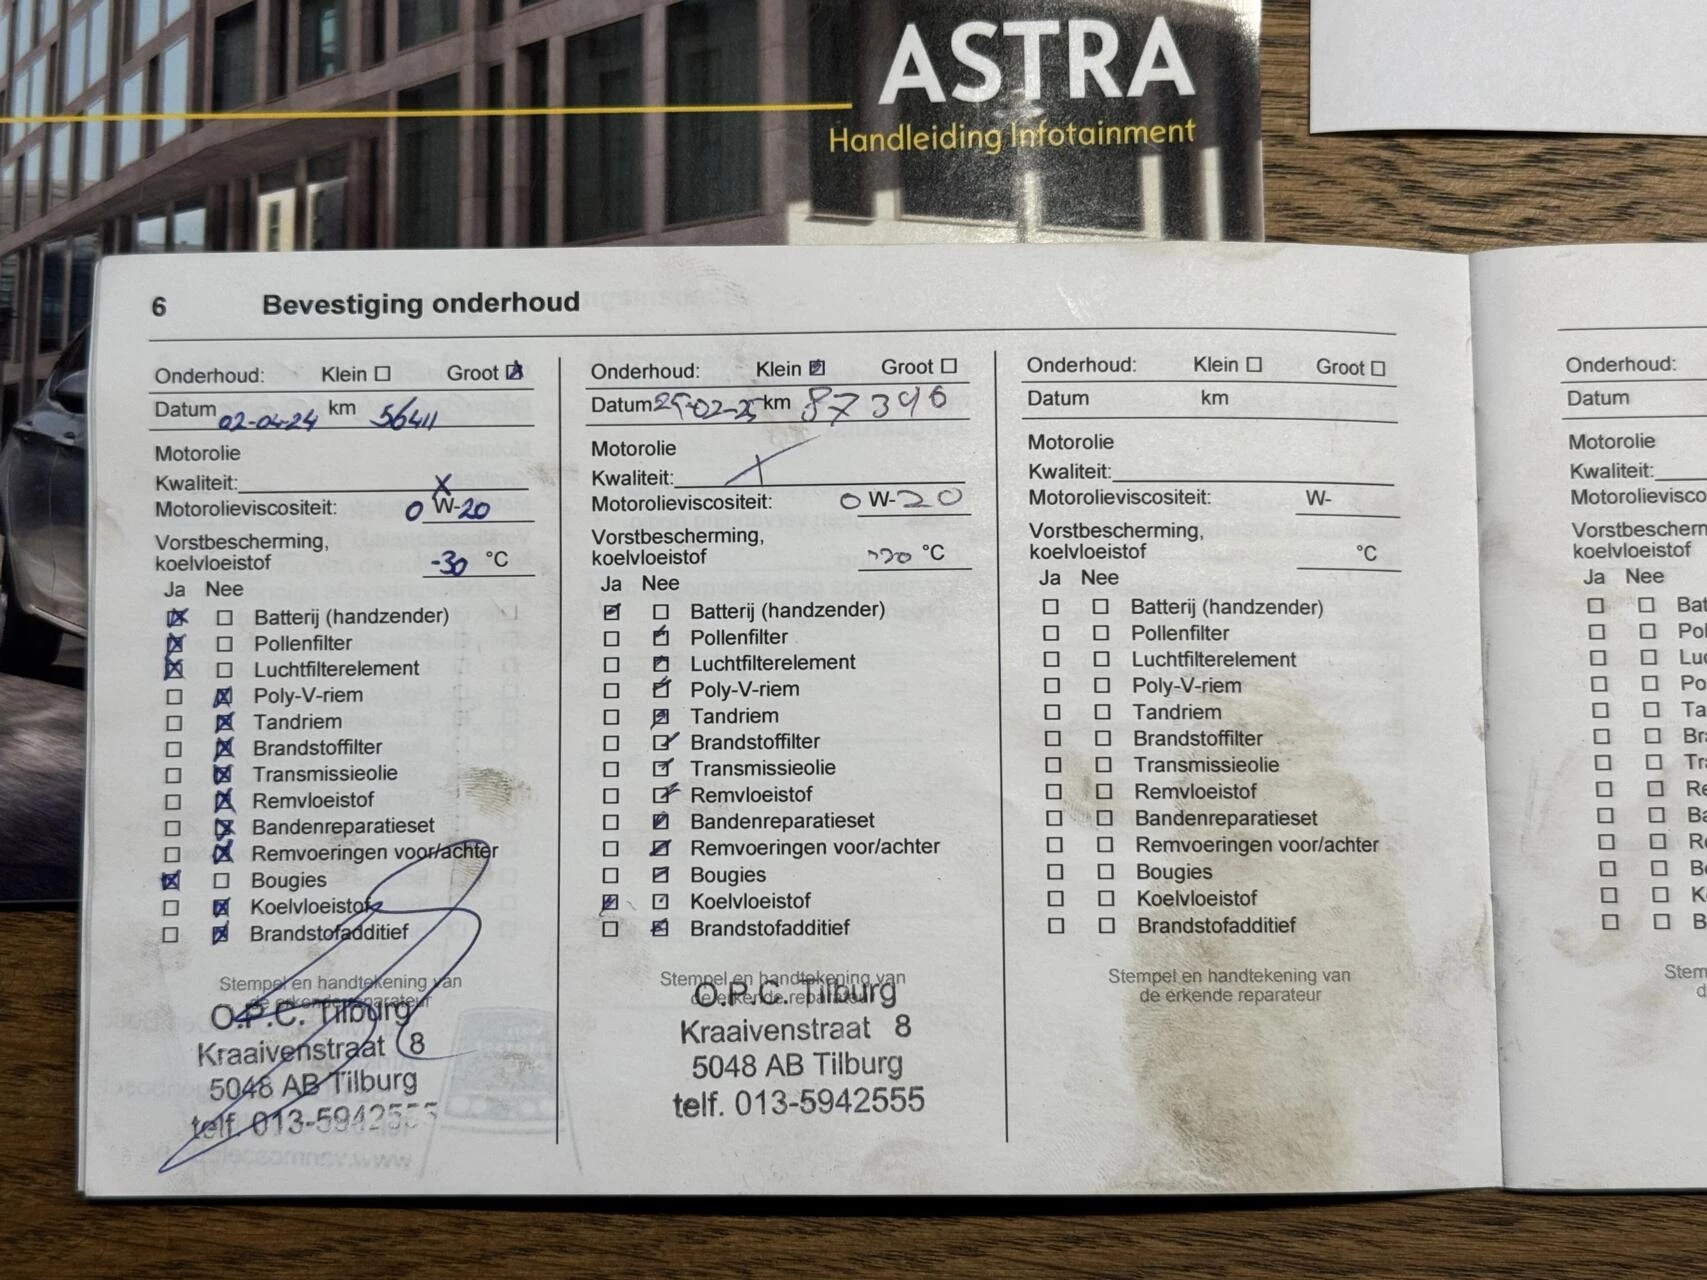 ASTRA
Handleiding Infotainment
6 Bevestiging onderhoud
Onderhoud: Klein Groot
Datum 02-04-24 km 56411
Motorolie
Kwaliteit: X
Motorolieviscositeit: 0 W-20
Vorstbescherming,
koelvloeistof -30 °C
Ja Nee
Batterij (handzender)
Pollenfilter
Luchtfilterelement
Poly-V-riem
Tandriem
Brandstoffilter
Transmissieolie
Remvloeistof
Bandenreparatieset
Remvoeringen voor/achter
Bougies
Koelvloeistof
Brandstofadditief
Stempel en handtekening van
de erkende reparateur
O.P.C. Tilburg
Kraaivenstraat 8
5048 AB Tilburg
telf. 013-5942555
Onderhoud: Klein Groot
Datum km 87396
Motorolie
Kwaliteit: X
Motorolieviscositeit: 0 W-20
Vorstbescherming,
koelvloeistof °C
Ja Nee
Batterij (handzender)
Pollenfilter
Luchtfilterelement
Poly-V-riem
Tandriem
Brandstoffilter
Transmissieolie
Remvloeistof
Bandenreparatieset
Remvoeringen voor/achter
Bougies
Koelvloeistof
Brandstofadditief
Stempel en handtekening van
de erkende reparateur
O.P.C. Tilburg
Kraaivenstraat 8
5048 AB Tilburg
telf. 013-5942555
Onderhoud: Klein Groot
Datum km
Motorolie
Kwaliteit:
Motorolieviscositeit: W-
Vorstbescherming,
koelvloeistof °C
Ja Nee
Batterij (handzender)
Pollenfilter
Luchtfilterelement
Poly-V-riem
Tandriem
Brandstoffilter
Transmissieolie
Remvloeistof
Bandenreparatieset
Remvoeringen voor/achter
Bougies
Koelvloeistof
Brandstofadditief
Stempel en handtekening van
de erkende reparateur
Onderhoud:
Datum
Motorolie
Kwaliteit:
Motorolievisco
Vorstbescherm
koelvloeistof
Ja Nee
Bat
Pol
Luc
Po
Ta
Bra
Tra
Re
Ba
Re
Bo
Ko
B
Stem
d